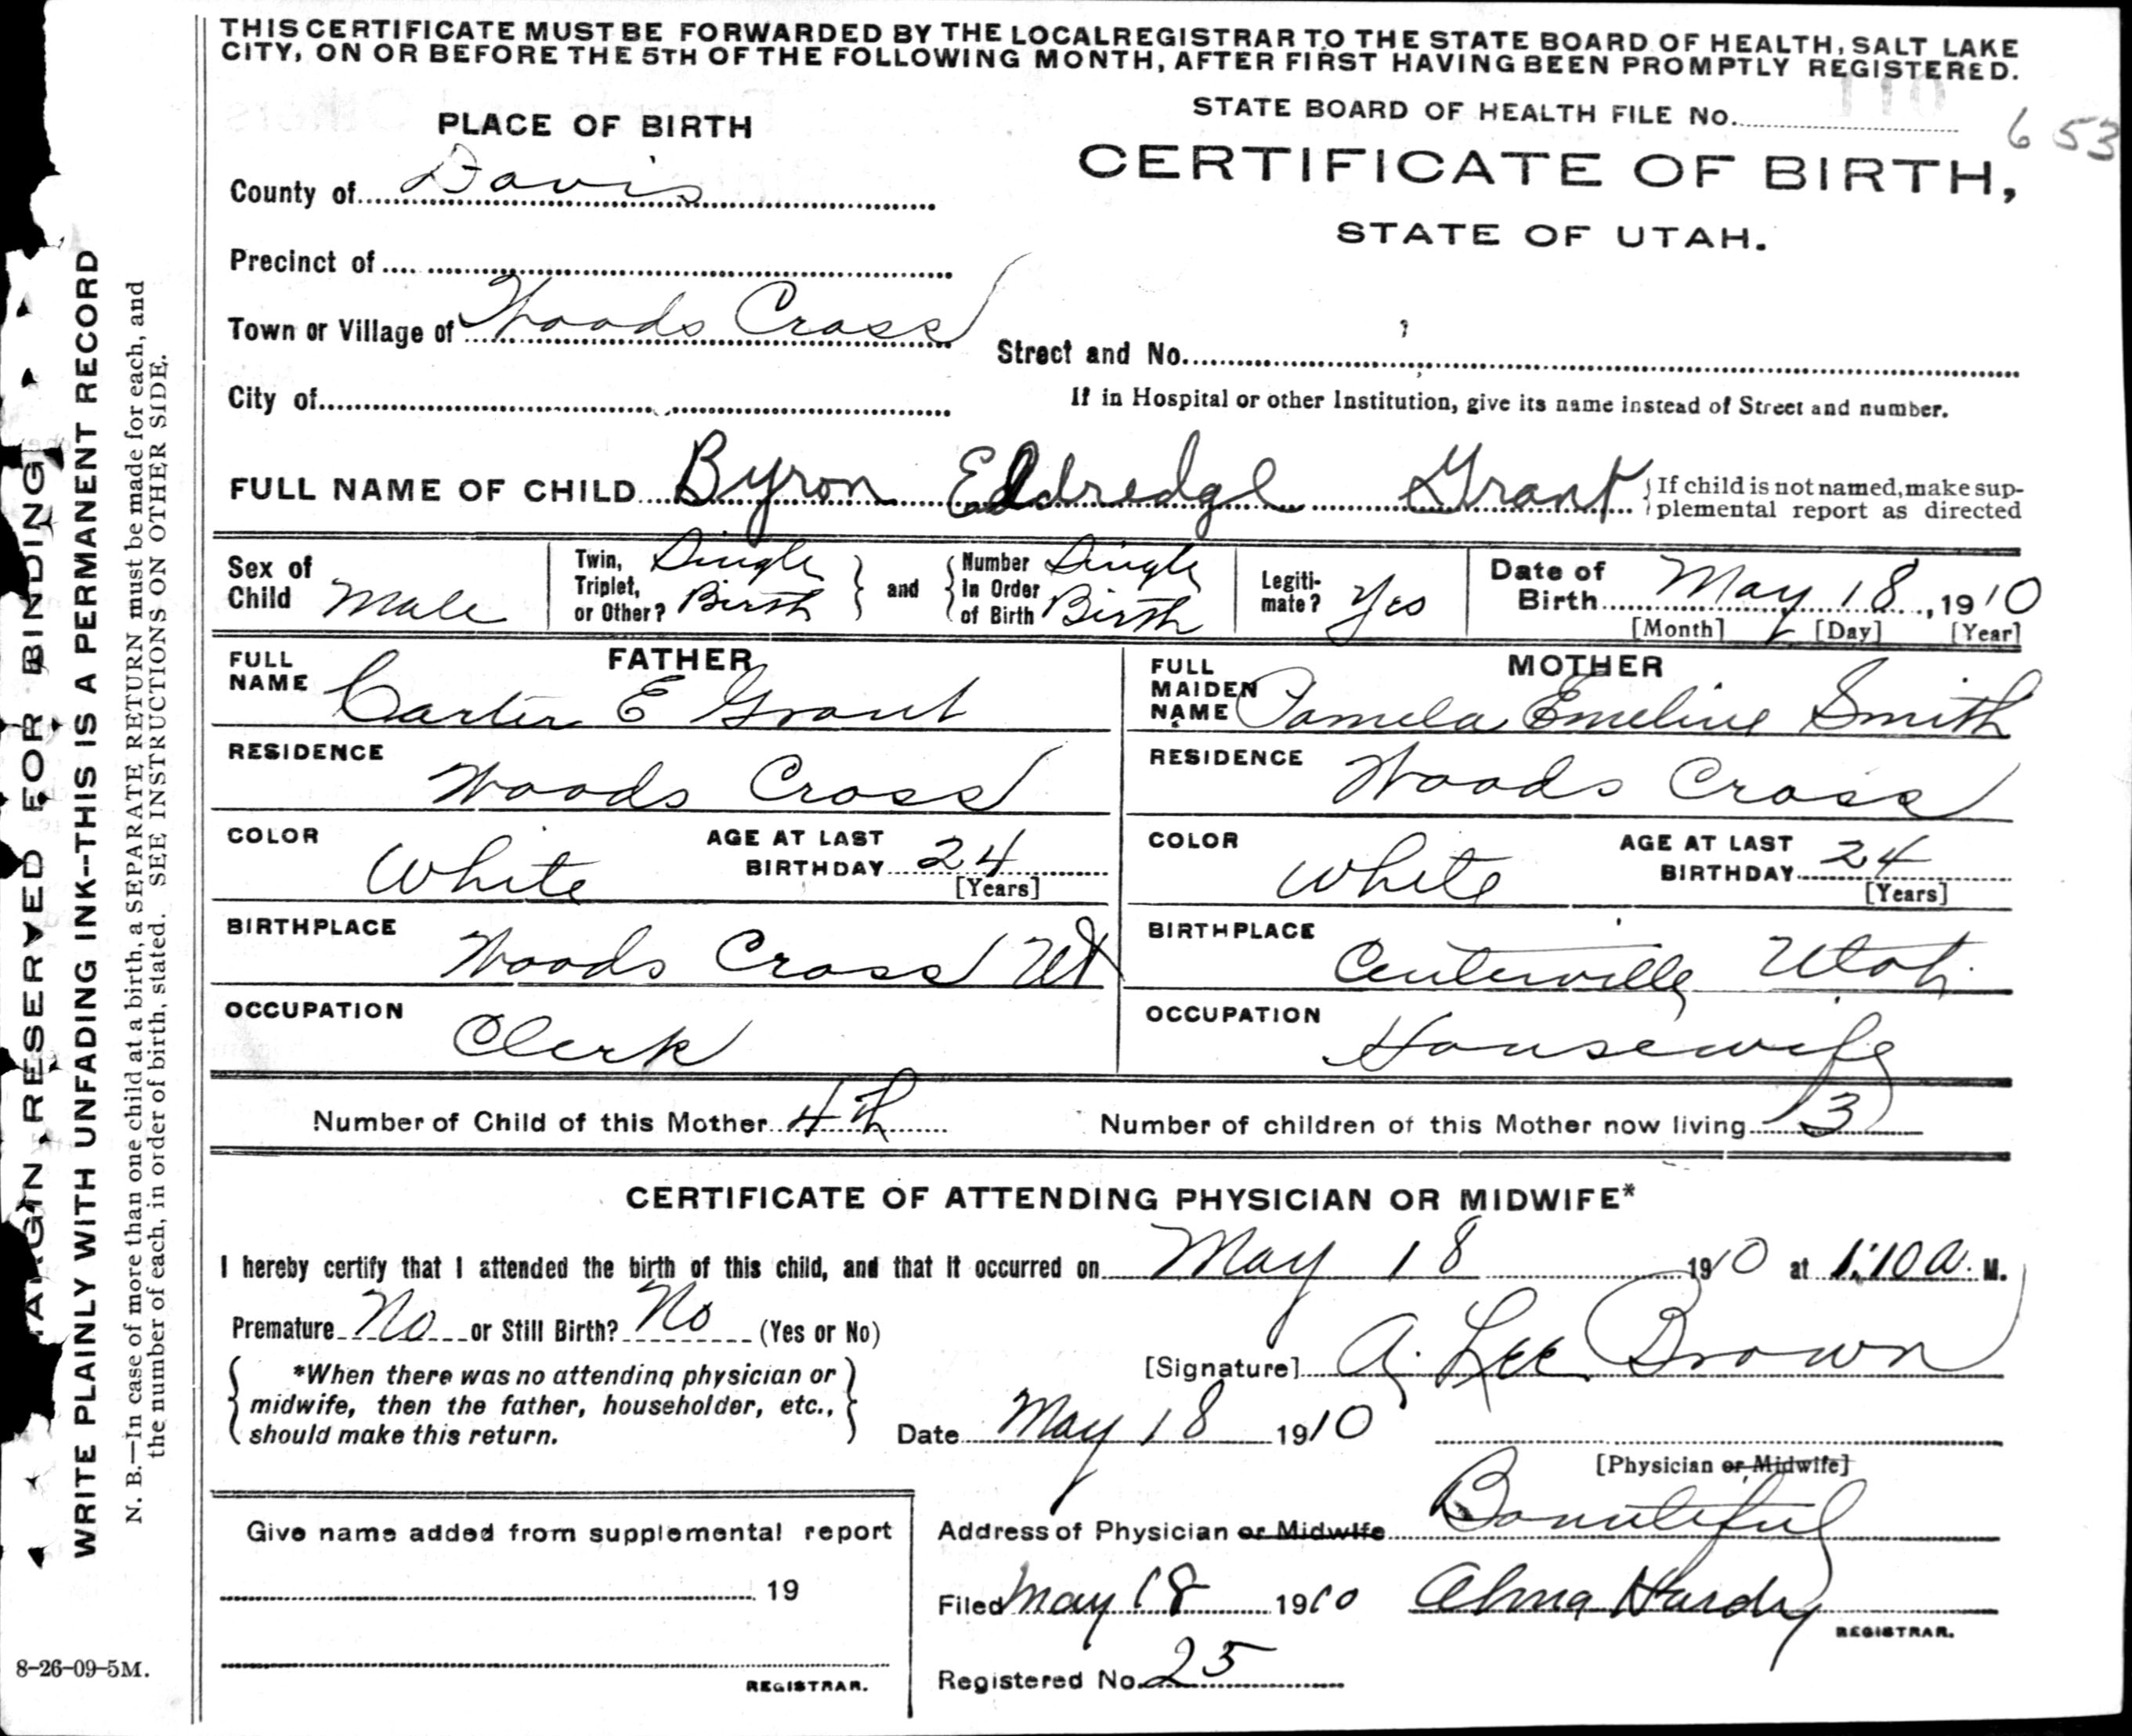 THIS CERTIFICATE MUST BE FORWARDED BY THE LOCAL REGISTRAR TO THE STATE BOARD OF HEALTH, SALT LAKE
CITY, ON OR BEFORE THE 5TH OF THE FOLLOWING MONTH, AFTER FIRST HAVING BEEN PROMPTLY REGISTERED.
STATE BOARD OF HEALTH FILE No.
110
653
PLACE OF BIRTH
CERTIFICATE OF BIRTH,
STATE OF UTAH.
County of Davis
Precinct of
Town or Village of Woods Cross
Street and No.
City of
If in Hospital or other Institution, give its name instead of Street and number.
FULL NAME OF CHILD Byron Eldredge Grant
{If child is not named, make sup-
plemental report as directed
Sex of
Child Male
Twin,
Triplet,
or Other? Single Birth
and
Number
in Order
of Birth Single Birth
Legiti-
mate? Yes
Date of
Birth May 18, 1910
[Month] [Day] [Year]
FATHER
FULL
NAME Carter E Grant
RESIDENCE Woods Cross
COLOR White
AGE AT LAST
BIRTHDAY 24
[Years]
BIRTHPLACE Woods Cross Ut
OCCUPATION Clerk
MOTHER
FULL
MAIDEN
NAME Pamela Emeline Smith
RESIDENCE Woods Cross
COLOR White
AGE AT LAST
BIRTHDAY 24
[Years]
BIRTHPLACE Centerville Utah
OCCUPATION Housewife
Number of Child of this Mother 4th
Number of children of this Mother now living 3
CERTIFICATE OF ATTENDING PHYSICIAN OR MIDWIFE*
I hereby certify that I attended the birth of this child, and that it occurred on May 18 1910 at 1:10 a. M.
Premature No or Still Birth? No (Yes or No)
*When there was no attending physician or
midwife, then the father, householder, etc.,
should make this return.
[Signature] A. Lee Brown
Date May 18 1910
[Physician or Midwife]
Address of Physician or Midwife Bountiful
Give name added from supplemental report
19
REGISTRAR.
Filed May 18 1910 Alma Hardy
REGISTRAR.
Registered No. 25
MARGIN RESERVED FOR BINDING
WRITE PLAINLY WITH UNFADING INK--THIS IS A PERMANENT RECORD
N. B.—In case of more than one child at a birth, a SEPARATE RETURN must be made for each, and
the number of each, in order of birth, stated. SEE INSTRUCTIONS ON OTHER SIDE.
8-26-09-5M.